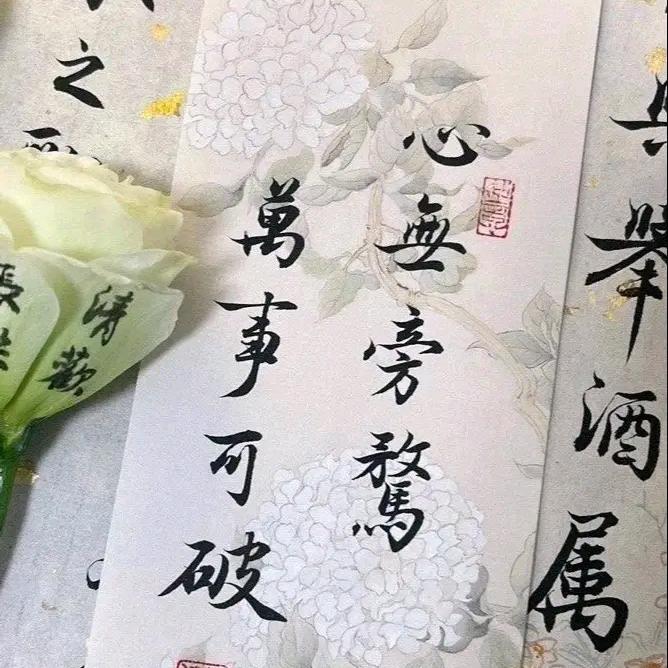 舉酒属
心無旁騖
萬事可破
之
清歡